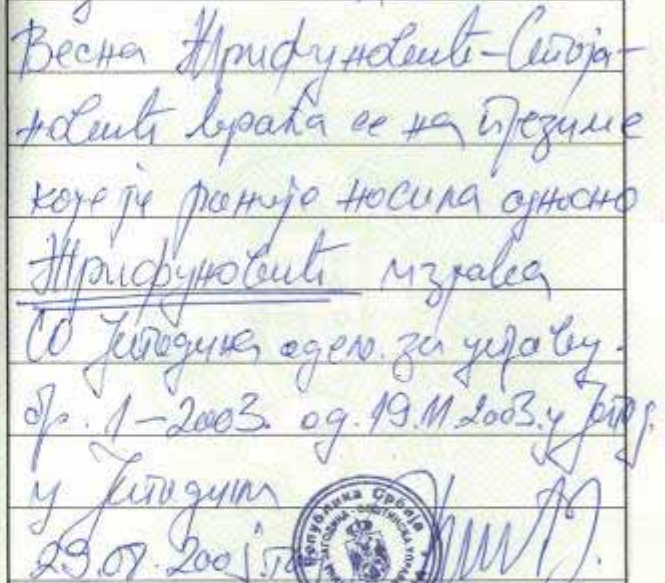 Весна Трифуновић-Стоја-
новић враћа се на презиме
које је раније носила односно
Трифуновић изјава
СО Јагодина одељ. за управу.
бр. 1-2003. од. 19.11.2003. у Јагод.
у Јагодини
29.07.200
Република Србија